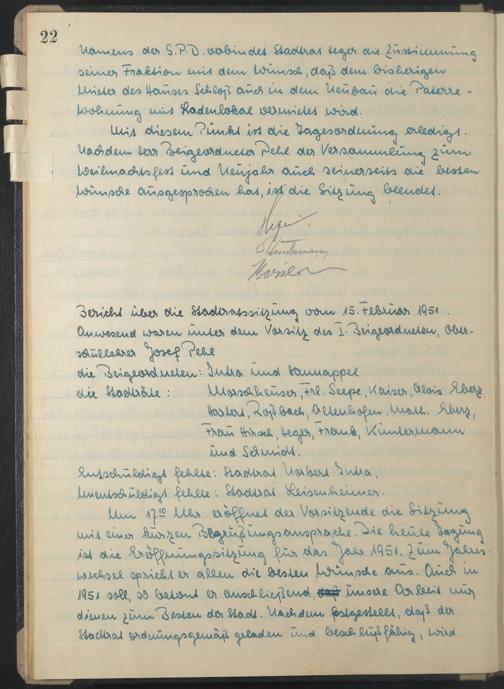 22
Namens der S.P.D. verbindet Stadtrat Heger die Zustimmung
seiner Fraktion mit dem Wunsch, daß dem bisherigen
Mieter des Hauses Schloß auch in dem Neubau die Paterre-
wohnung mit Ladenlokal vermietet wird.
Mit diesem Punkt ist die Tagesordnung erledigt.
Nachdem Herr Beigeordneter Pehe der Versammlung zum
Weihnachtsfest und Neujahr auch seinerseits die besten
Wünsche ausgesprochen hat, ist die Sitzung beendet.
Bericht über die Stadtratssitzung vom 15. Februar 1951.
Anwesend waren unter dem Vorsitz des I. Beigeordneten, Ober-
schullehrer Josef Pehe
die Beigeordneten: Jutra und Hannappel
die Stadträte: Morschheuser, Frl. Seepe, Kaiser, Alois Eberz,
Roßbach, Altenhofen, Math. Eberz,
Frau Hirsch, Heger, Frank, Küntermann
und Schmidt.
Entschuldigt fehlte: Stadtrat Norbert Jutra,
Unentschuldigt fehlte: Stadtrat Heisenheimer.
Um 17¹⁰ Uhr eröffnet der Vorsitzende die Sitzung
mit einer kurzen Begrüßungsansprache. Die heute Tagung
ist die Eröffnungssitzung für das Jahr 1951. Zum Jahres-
wechsel spricht er allen die besten Wünsche aus. Auch in
1951 soll, so betont er anschließend, unsere Arbeit nur
dienen zum Besten der Stadt. Nachdem festgestellt, daß der
Stadtrat ordnungsgemäß geladen und beschlußfähig, wird